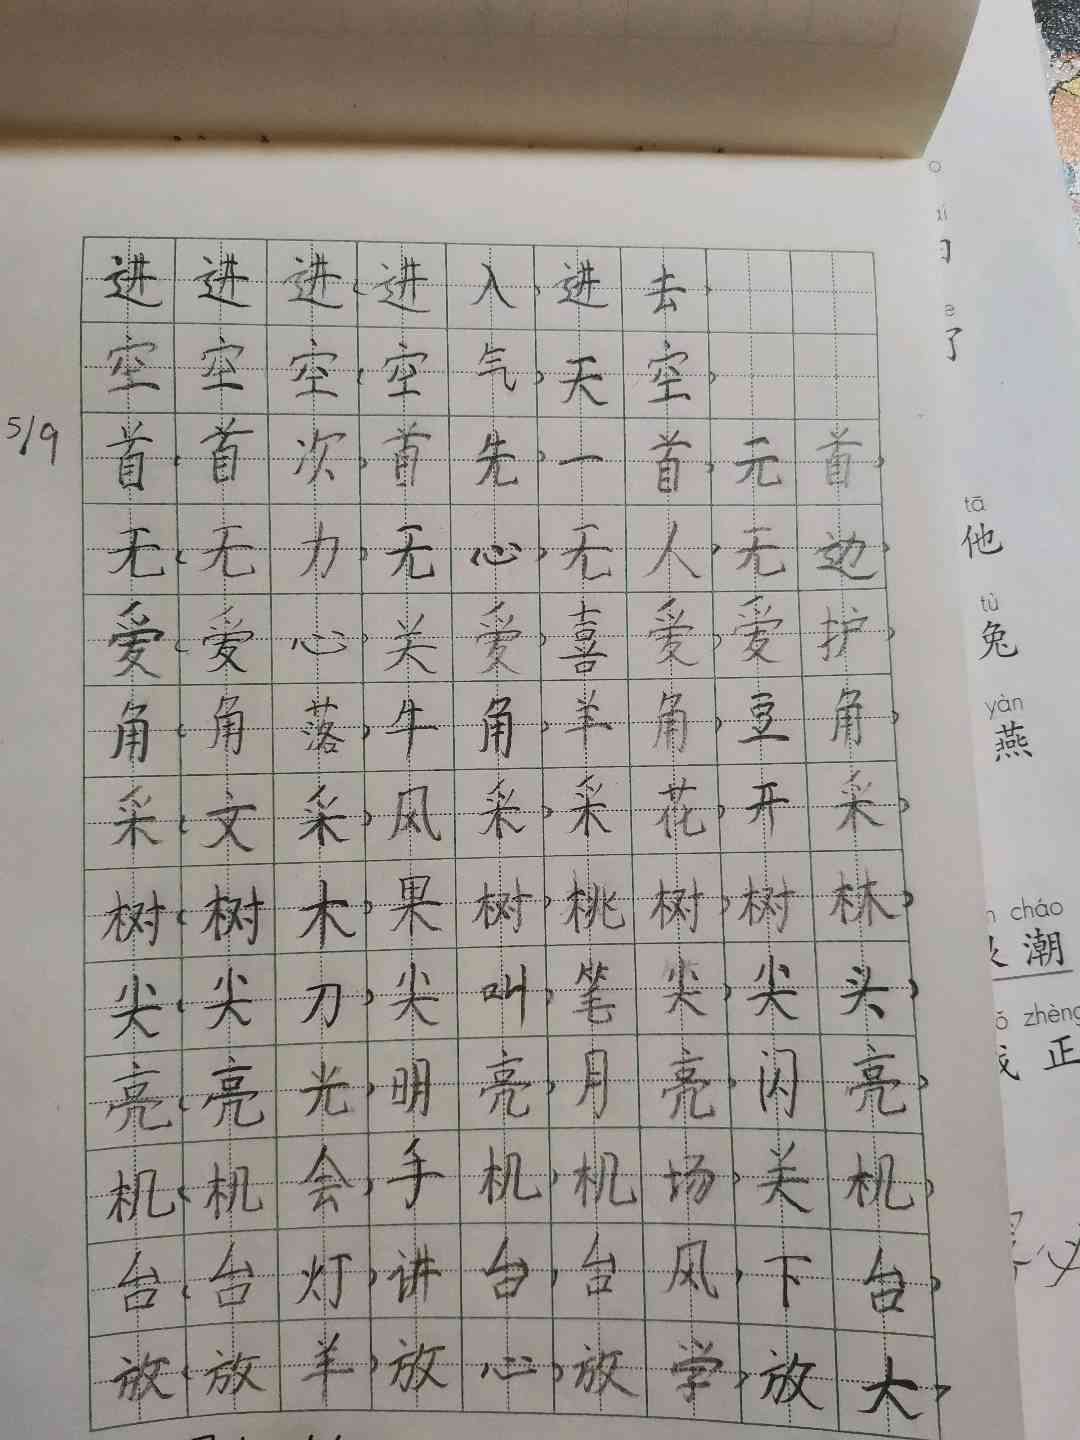 进进进(进入)进去)
空空空(空气)天空)
5/9
首(首次)首先)一首)元首)
无(无力)无心)无人)无边)
爱(爱心)关爱)喜爱)爱护)
角(角落)牛角)羊角)豆角)
采(文采)风采)采花)开采)
树(树木)果树)桃树)树林)
尖(尖刀)尖叫)笔尖)尖头)
亮(亮光)明亮)月亮)闪亮)
机(机会)手机)机场)关机)
台(台灯)讲台)台风)下台)
放(放羊)放心)放学)放大)
了
tā
他
tù
兔
yàn
燕
cháo
潮
zhèng
正